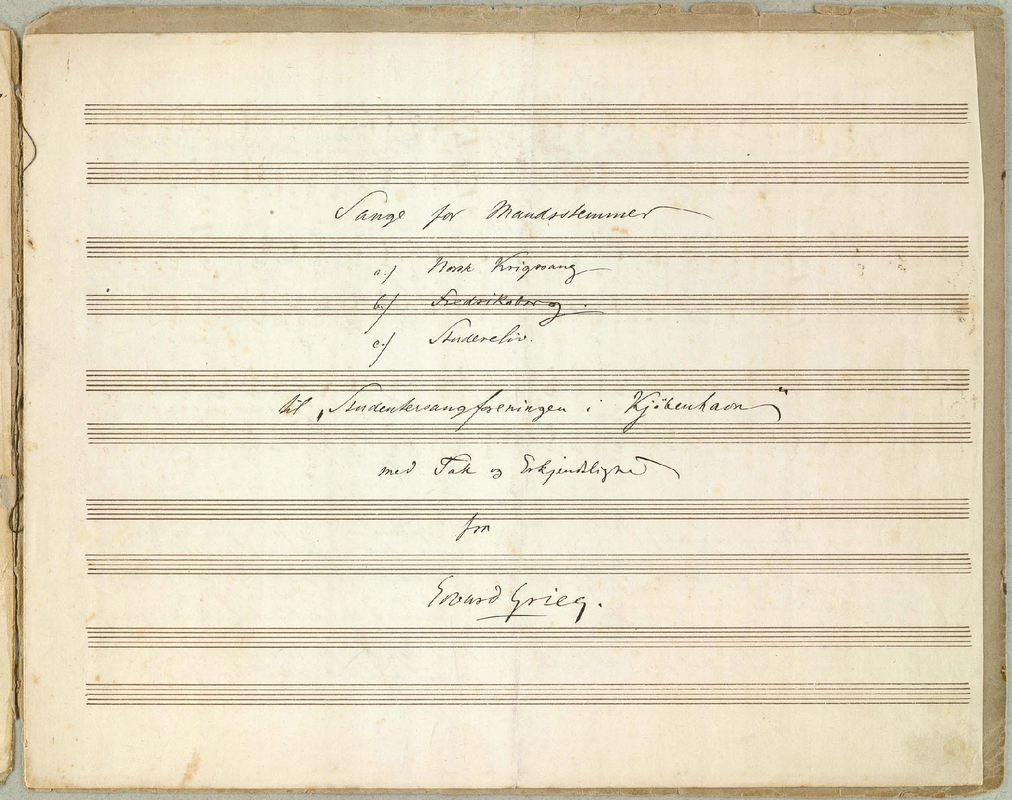 Sange for Mandsstemmer
a.) Norsk Krigssang
b.) Fredriksborg.
c.) Studereliv.
til „Studentersangforeningen i Kjöbenhavn"
med Tak og Erkjendtlighed
fra
Edvard Grieg.